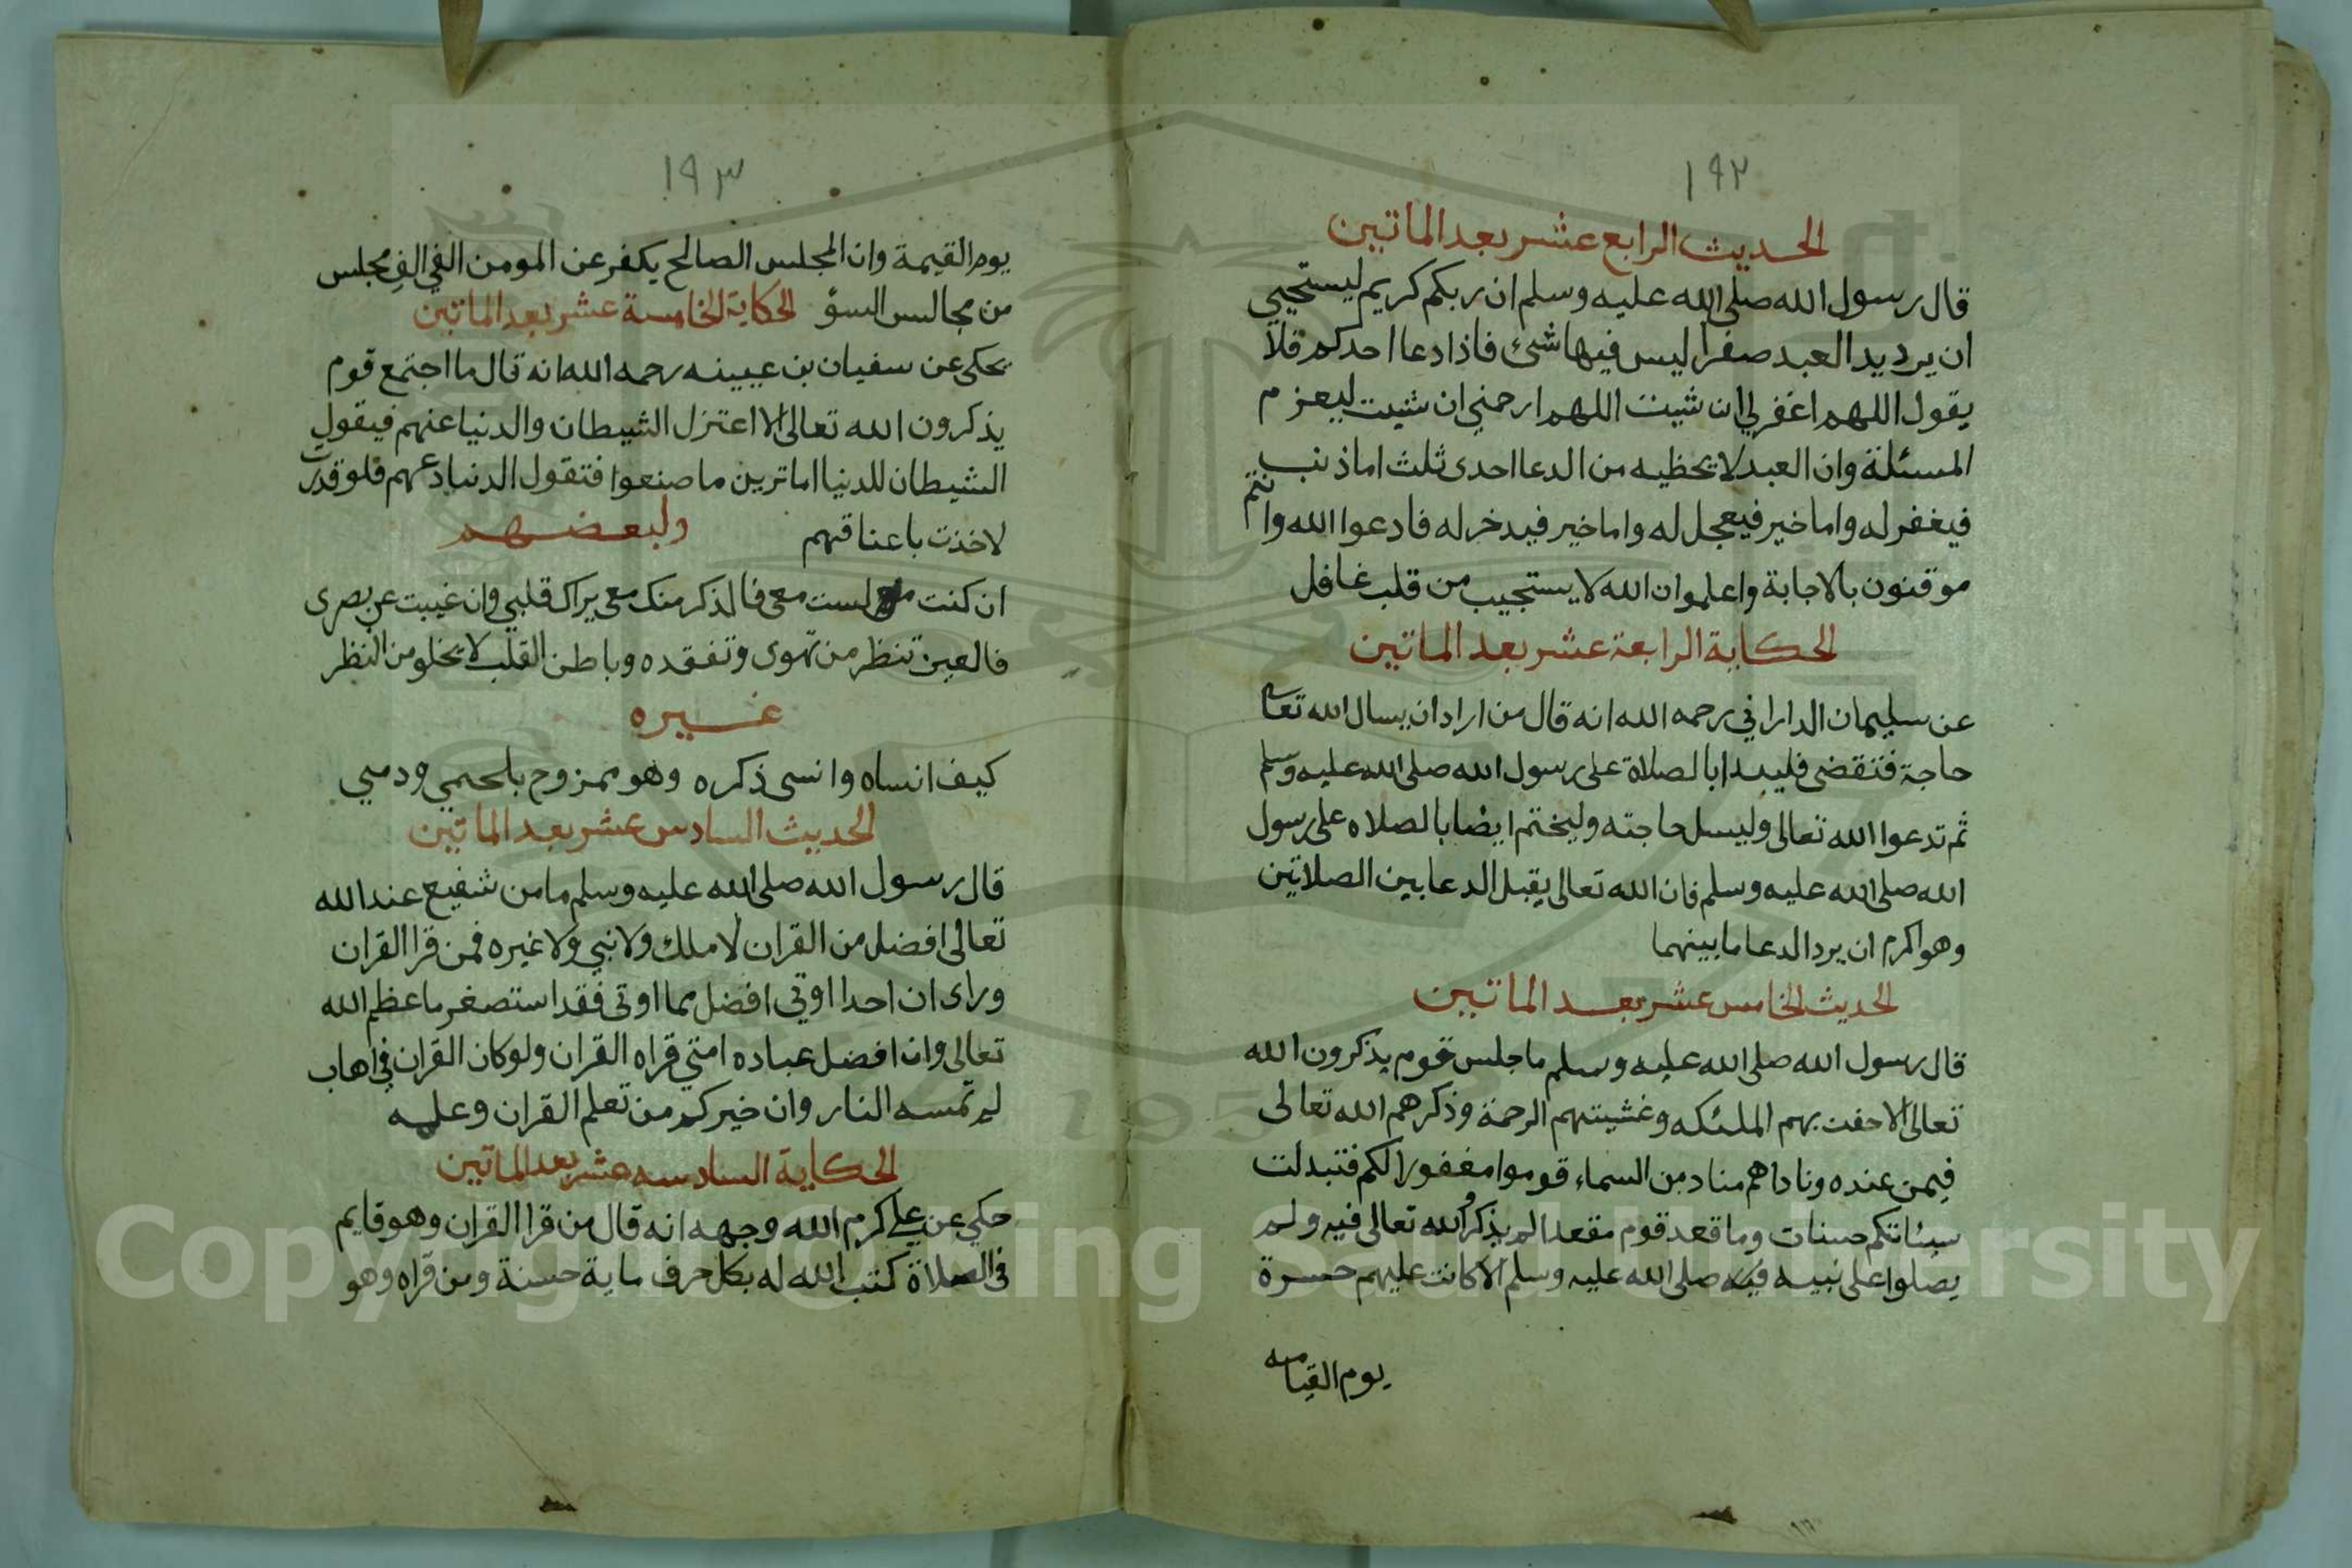 ١٩٢
الحديث الرابع عشر بعد الماتين
قال رسول الله صلى الله عليه وسلم ان ربكم كريم ليستحيي
ان يرد يد العبد صفرا ليس فيها شئ فاذا دعا احدكم فلا
يقول اللهم اغفر لي ان شيت اللهم ارحمني ان شيت ليعزم
المسئلة وان العبد لا يخطيه من الدعا احدى ثلث اما ذنب
فيغفر له واما خير فيعجل له واما خير فيدخر له فادعوا الله وانتم
موقنون بالاجابة واعلموا ان الله لا يستجيب من قلب غافل
الحكاية الرابعة عشر بعد الماتين
عن سليمان الداراني رحمه الله انه قال من اراد ان يسال الله تعالى
حاجة فتقضى فليبدا بالصلاة على رسول الله صلى الله عليه وسلم
ثم تدعوا الله تعالى وليسل حاجته وليختم ايضا بالصلاه على رسول
الله صلى الله عليه وسلم فان الله تعالى يقبل الدعا بين الصلاتين
وهو اكرم ان يرد الدعا ما بينهما
الحديث الخامس عشر بعد الماتين
قال رسول الله صلى الله عليه وسلم ما جلس قوم يذكرون الله
تعالى الا حفت بهم الملئكه وغشيتهم الرحمة وذكرهم الله تعالى
فيمن عنده وناداهم مناد من السماء قوموا مغفورا لكم فتبدلت
سيئاتكم حسنات وما قعد قوم مقعدا لم يذكروا الله تعالى فيه ولم
يصلوا على نبيه فيه صلى الله عليه وسلم الا كانت عليهم حسرة
يوم القيامه
١٩٣
يوم القيمة وان المجلس الصالح يكفر عن المومن الفي الف مجلس
من مجالس السؤ الحكاية الخامسة عشر بعد الماتين
يحكى عن سفيان بن عيينه رحمه الله انه قال ما اجتمع قوم
يذكرون الله تعالى الا اعتزل الشيطان والدنيا عنهم فيقول
الشيطان للدنيا اما ترين ما صنعوا فتقول الدنيا دعهم فلو قدرت
لاخذت باعناقهم ولبعضهم
ان كنت لست معي فالذكر منك معي يراك قلبي وان غيبت عن بصرى
فالعين تنظر من تهوى وتفقده وباطن القلب لا يخلو من النظر
غيره
كيف انساه وانسى ذكره وهو ممزوج بلحمي ودمي
الحديث السادس عشر بعد الماتين
قال رسول الله صلى الله عليه وسلم ما من شفيع عند الله
تعالى افضل من القران لا ملك ولا نبي ولا غيره فمن قرا القران
وراى ان احدا اوتي افضل مما اوتى فقد استصغر ما عظم الله
تعالى وان افضل عباده امتي قراه القران ولو كان القران في اهاب
لم تمسه النار وان خيركم من تعلم القران وعلمه
الحكاية السادسه عشر بعد الماتين
حكي عن علي كرم الله وجهه انه قال من قرا القران وهو قايم
في الصلاة كتب الله له بكل حرف ماية حسنة ومن قراه وهو
Copyright © King Saud University
1957